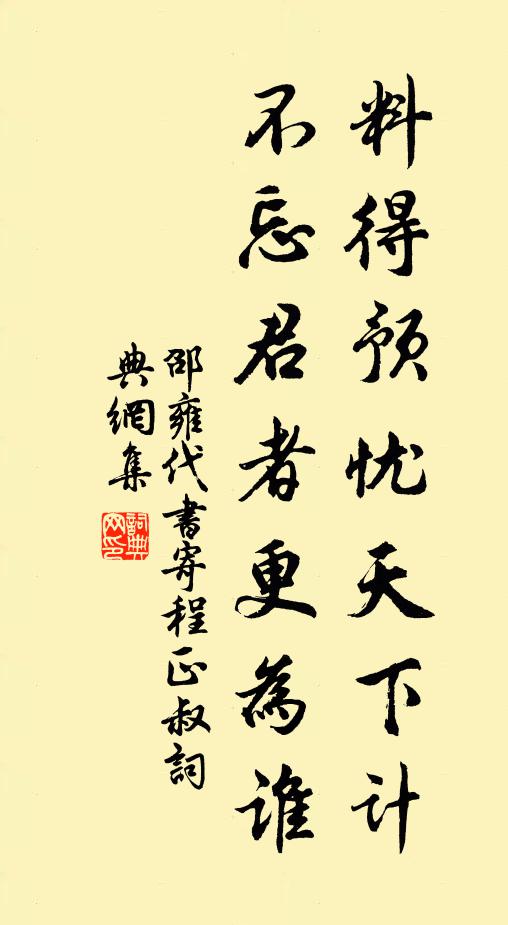 料得预忧天下计
不忘君者更為谁
邵雍代書寄程正叔詞
典網集
詞典网印